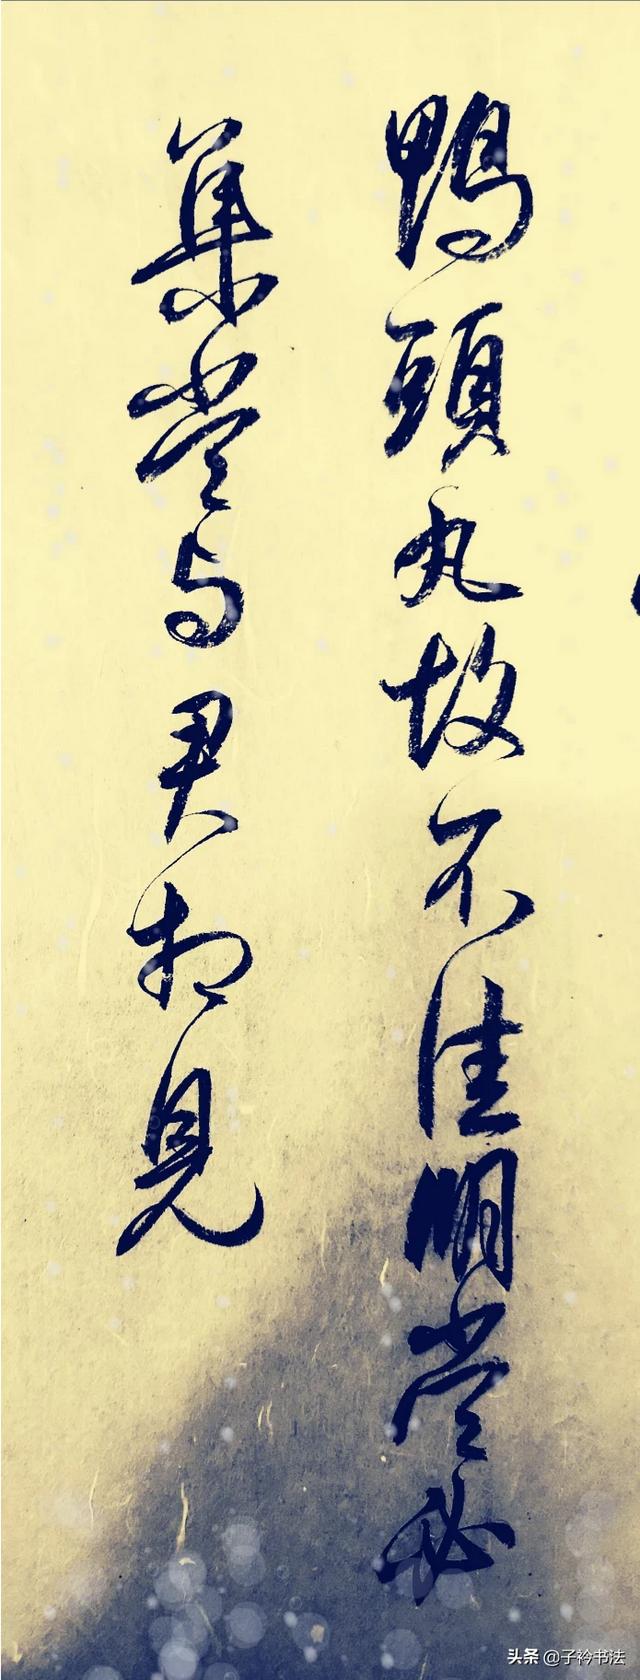 鴨頭丸故不佳明當必
集當与君相見
头条 @子衿书法